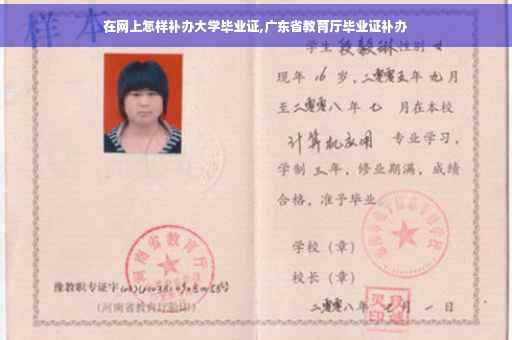 在网上怎样补办大学毕业证,广东省教育厅毕业证补办
样本
学生段毅琳性别女
现年16岁,二零零五年九月
至二零零八年七月在本校
计算机应用专业学习,
学制三年,修业期满,成绩
合格,准予毕业
学校(章)
校长(章)
二零零八年七月一日
河南省教育厅
豫教职专证字
(河南省教育厅验印)